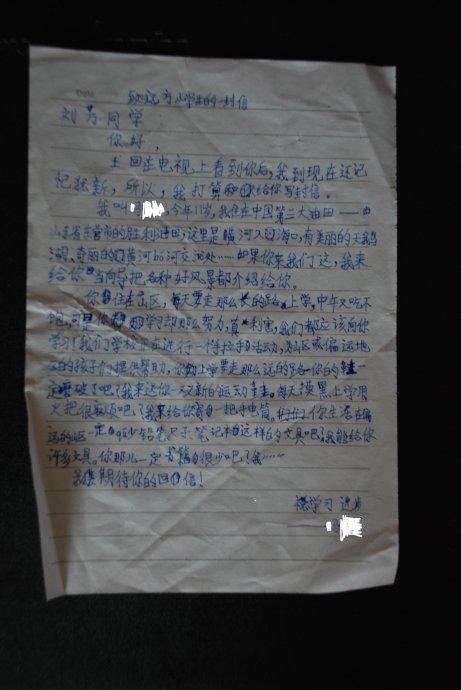 致远方小学生的一封信
刘芳同学
你好,
上回在电视上看到你后,我到现在还记
忆犹新,所以,我打算给你写封信。
我叫 今年11岁,我住在中国第二大油田——
山东省东营市的胜利油田,这里是黄河入海口,有美丽的天鹅
湖、奇丽的黄河的河交汇处……如果你来我们这,我来
给你当向导把各种好风景都介绍给你。
你住在山区,每天要走那么长的路上学,中午又吃不
饱,可是你学习却那么努力,真利害,我们都应该向你
学习!我们学校正在进行一 拉手活动,为山区或偏远地
的孩子们提供帮助,你们上学要走那么远的路你的鞋一
定 破了吧?我来送你一双新的运动鞋。每天摸黑上学用
火把很麻烦吧?我来给你寄一把手电筒。 你生活在偏
远的山区一定缺少铅笔尺子笔记本这样的文具吧?我能给你
许多文具。你那儿一定书籍很少吧?我……
我期待你的回信!
祝学习进步
——